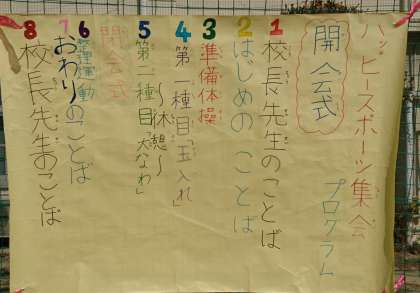 ハッピースポーツ集会
プログラム
開会式
1 校長先生のことば
2 はじめのことば
3 準備体操
4 第一種目「玉入れ」
〜休憩〜
5 第二種目「大なわ」
閉会式
6 整理運動
7 おわりのことば
8 校長先生のことば